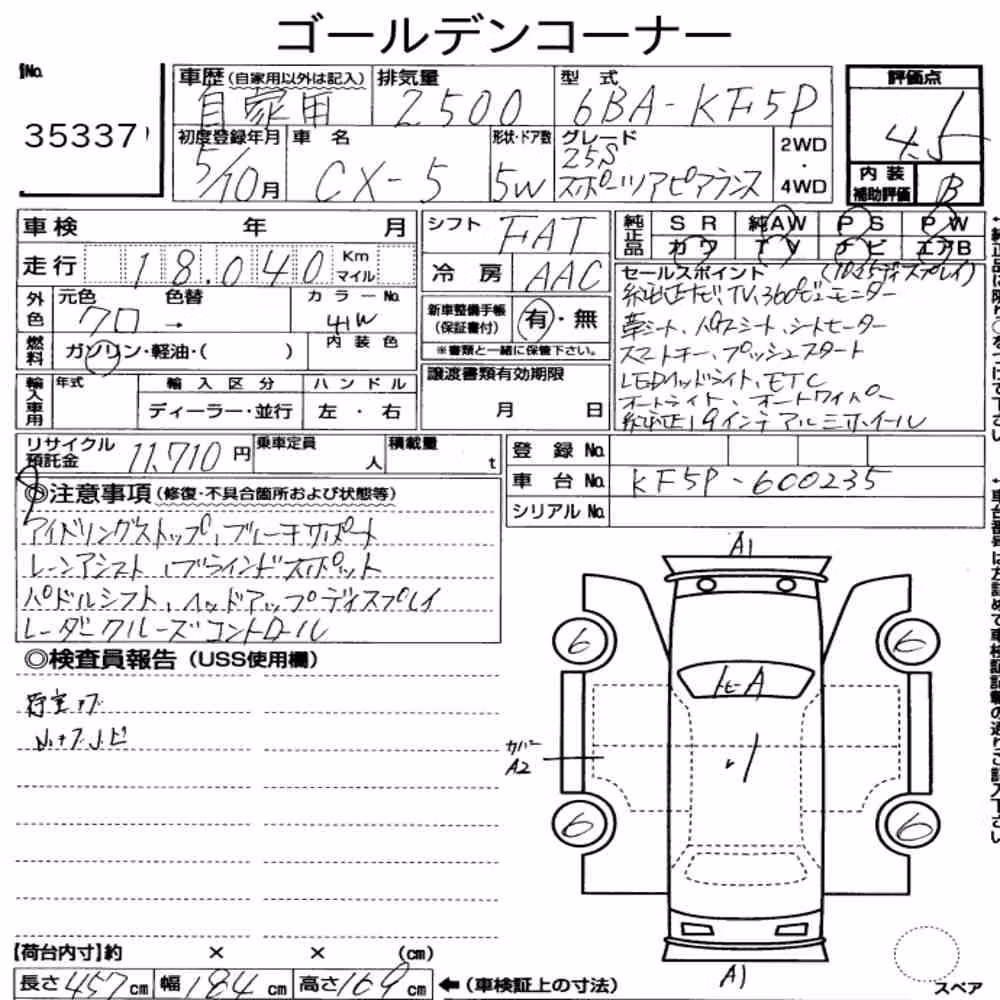 ゴールデンコーナー
No.
35337
車歴(自家用以外は記入)
自家用
排気量
2500
型 式
6BA-KF5P
評価点
4.5
初度登録年月
5/10月
車 名
CX-5
形状・ドア数
5W
グレード
25S
スポーツアピアランス
2WD
・
4WD
内 装
補助評価
B
車検 年 月
走行 18.040 Km
マイル
シフト FAT
冷 房 AAC
純正品
SR 純AW PS PW
カワ TV ナビ エアB
セールスポイント (10.25ディスプレイ)
純正ナビ、TV、360ビューモニター
革シート、パワーシート、シートヒーター
スマートキー、プッシュスタート
LEDヘッドライト、ETC
オートライト、オートワイパー
純正19インチアルミホイール
外色
元色 色替
クロ →
カラーNo.
41W
内装色
燃料
ガソリン・軽油・( )
新車整備手帳
(保証書付)
有・無
※書類と一緒に保管下さい。
輸入車用
年式
輸入区分
ディーラー・並行
ハンドル
左・右
譲渡書類有効期限
月 日
リサイクル
預託金
11,710 円
乗車定員
人
積載量
t
登 録 No.
車 台 No. KF5P-600235
シリアル No.
◎注意事項(修復・不具合箇所および状態等)
アイドリングストップ、ブレーキサポート
レーンアシスト、ブラインドスポット
パドルシフト、ヘッドアップディスプレイ
レーダークルーズコントロール
◎検査員報告(USS使用欄)
A1
6
6
カバー
A2
6
6
A1
スペア
【荷台内寸】約 × × (cm)
長さ457cm 幅184cm 高さ169cm
←(車検証上の寸法)